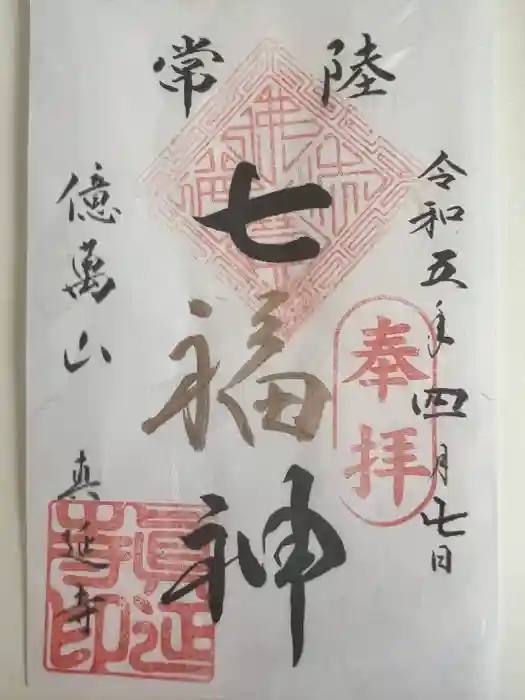 常陸
七福神
令和五年四月七日
奉拝
億萬山 真延寺
眞延寺印